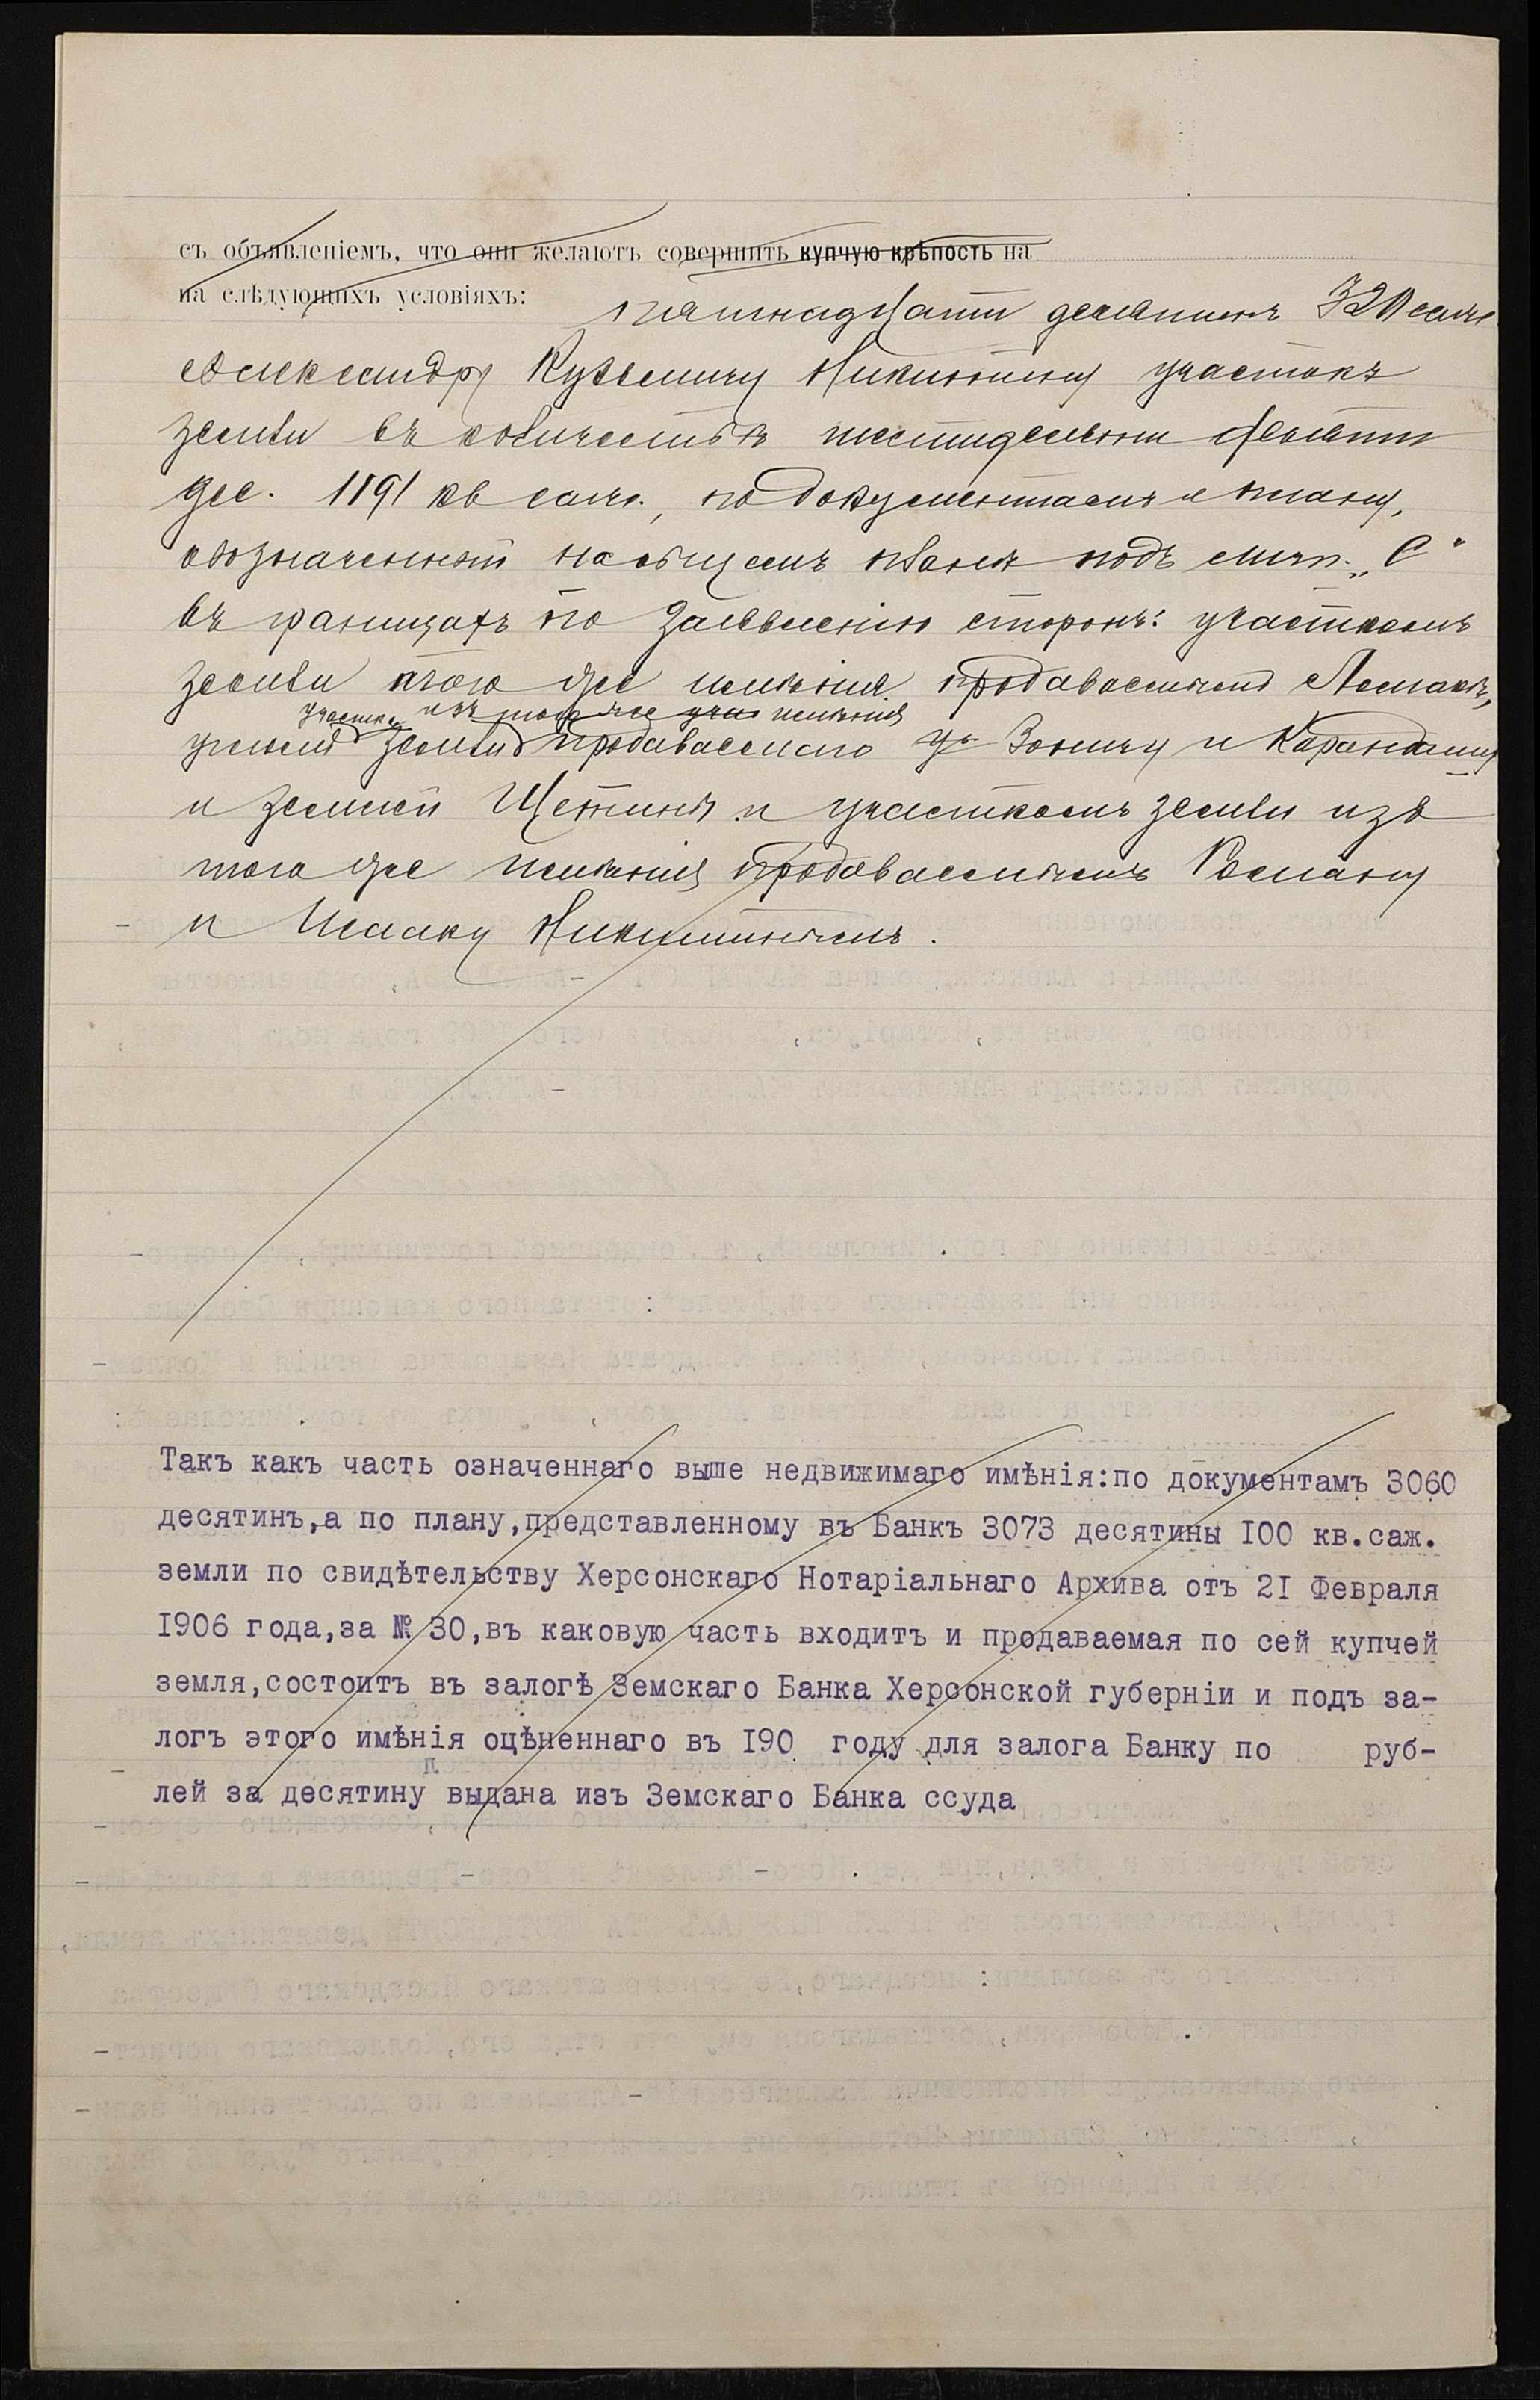 съ объявленіемъ, что они желаютъ совершить купчую крѣпость на
на слѣдующихъ условіяхъ:
пятнадцать десятинъ 320 саж.
Александру Кузьмичу Никитину участокъ
земли въ количествѣ шестидесяти девяти
дес. 1191 кв саж., по документамъ и плану,
обозначенный на общемъ планѣ подъ лит. „С“
въ границахъ по заявленію сторонъ: участкомъ
земли того же имѣнія продаваемымъ
участка изъ того же имѣнія
земли продаваемаго Зоничу и
и землей Щетины и участкомъ земли изъ
того же имѣнія продаваемымъ Роману
и Исааку Никитинымъ.
Такъ какъ часть означеннаго выше недвижимаго имѣнія:по документамъ 3060
десятинъ,а по плану,представленному въ Банкъ 3073 десятины I00 кв.саж.
земли по свидѣтельству Херсонскаго Нотаріальнаго Архива отъ 2I Февраля
I906 года,за № 30,въ каковую часть входитъ и продаваемая по сей купчей
земля,состоитъ въ залогѣ Земскаго Банка Херсонской губерніи и подъ за-
логъ этого имѣнія оцѣненнаго въ I90 году для залога Банку по руб-
лей за десятину выдана изъ Земскаго Банка ссуда